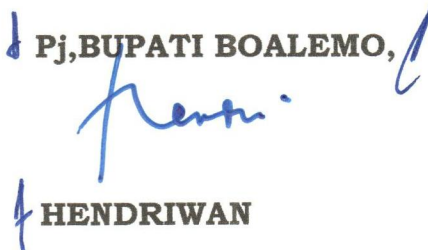 Pj,BUPATI BOALEMO,
HENDRIWAN